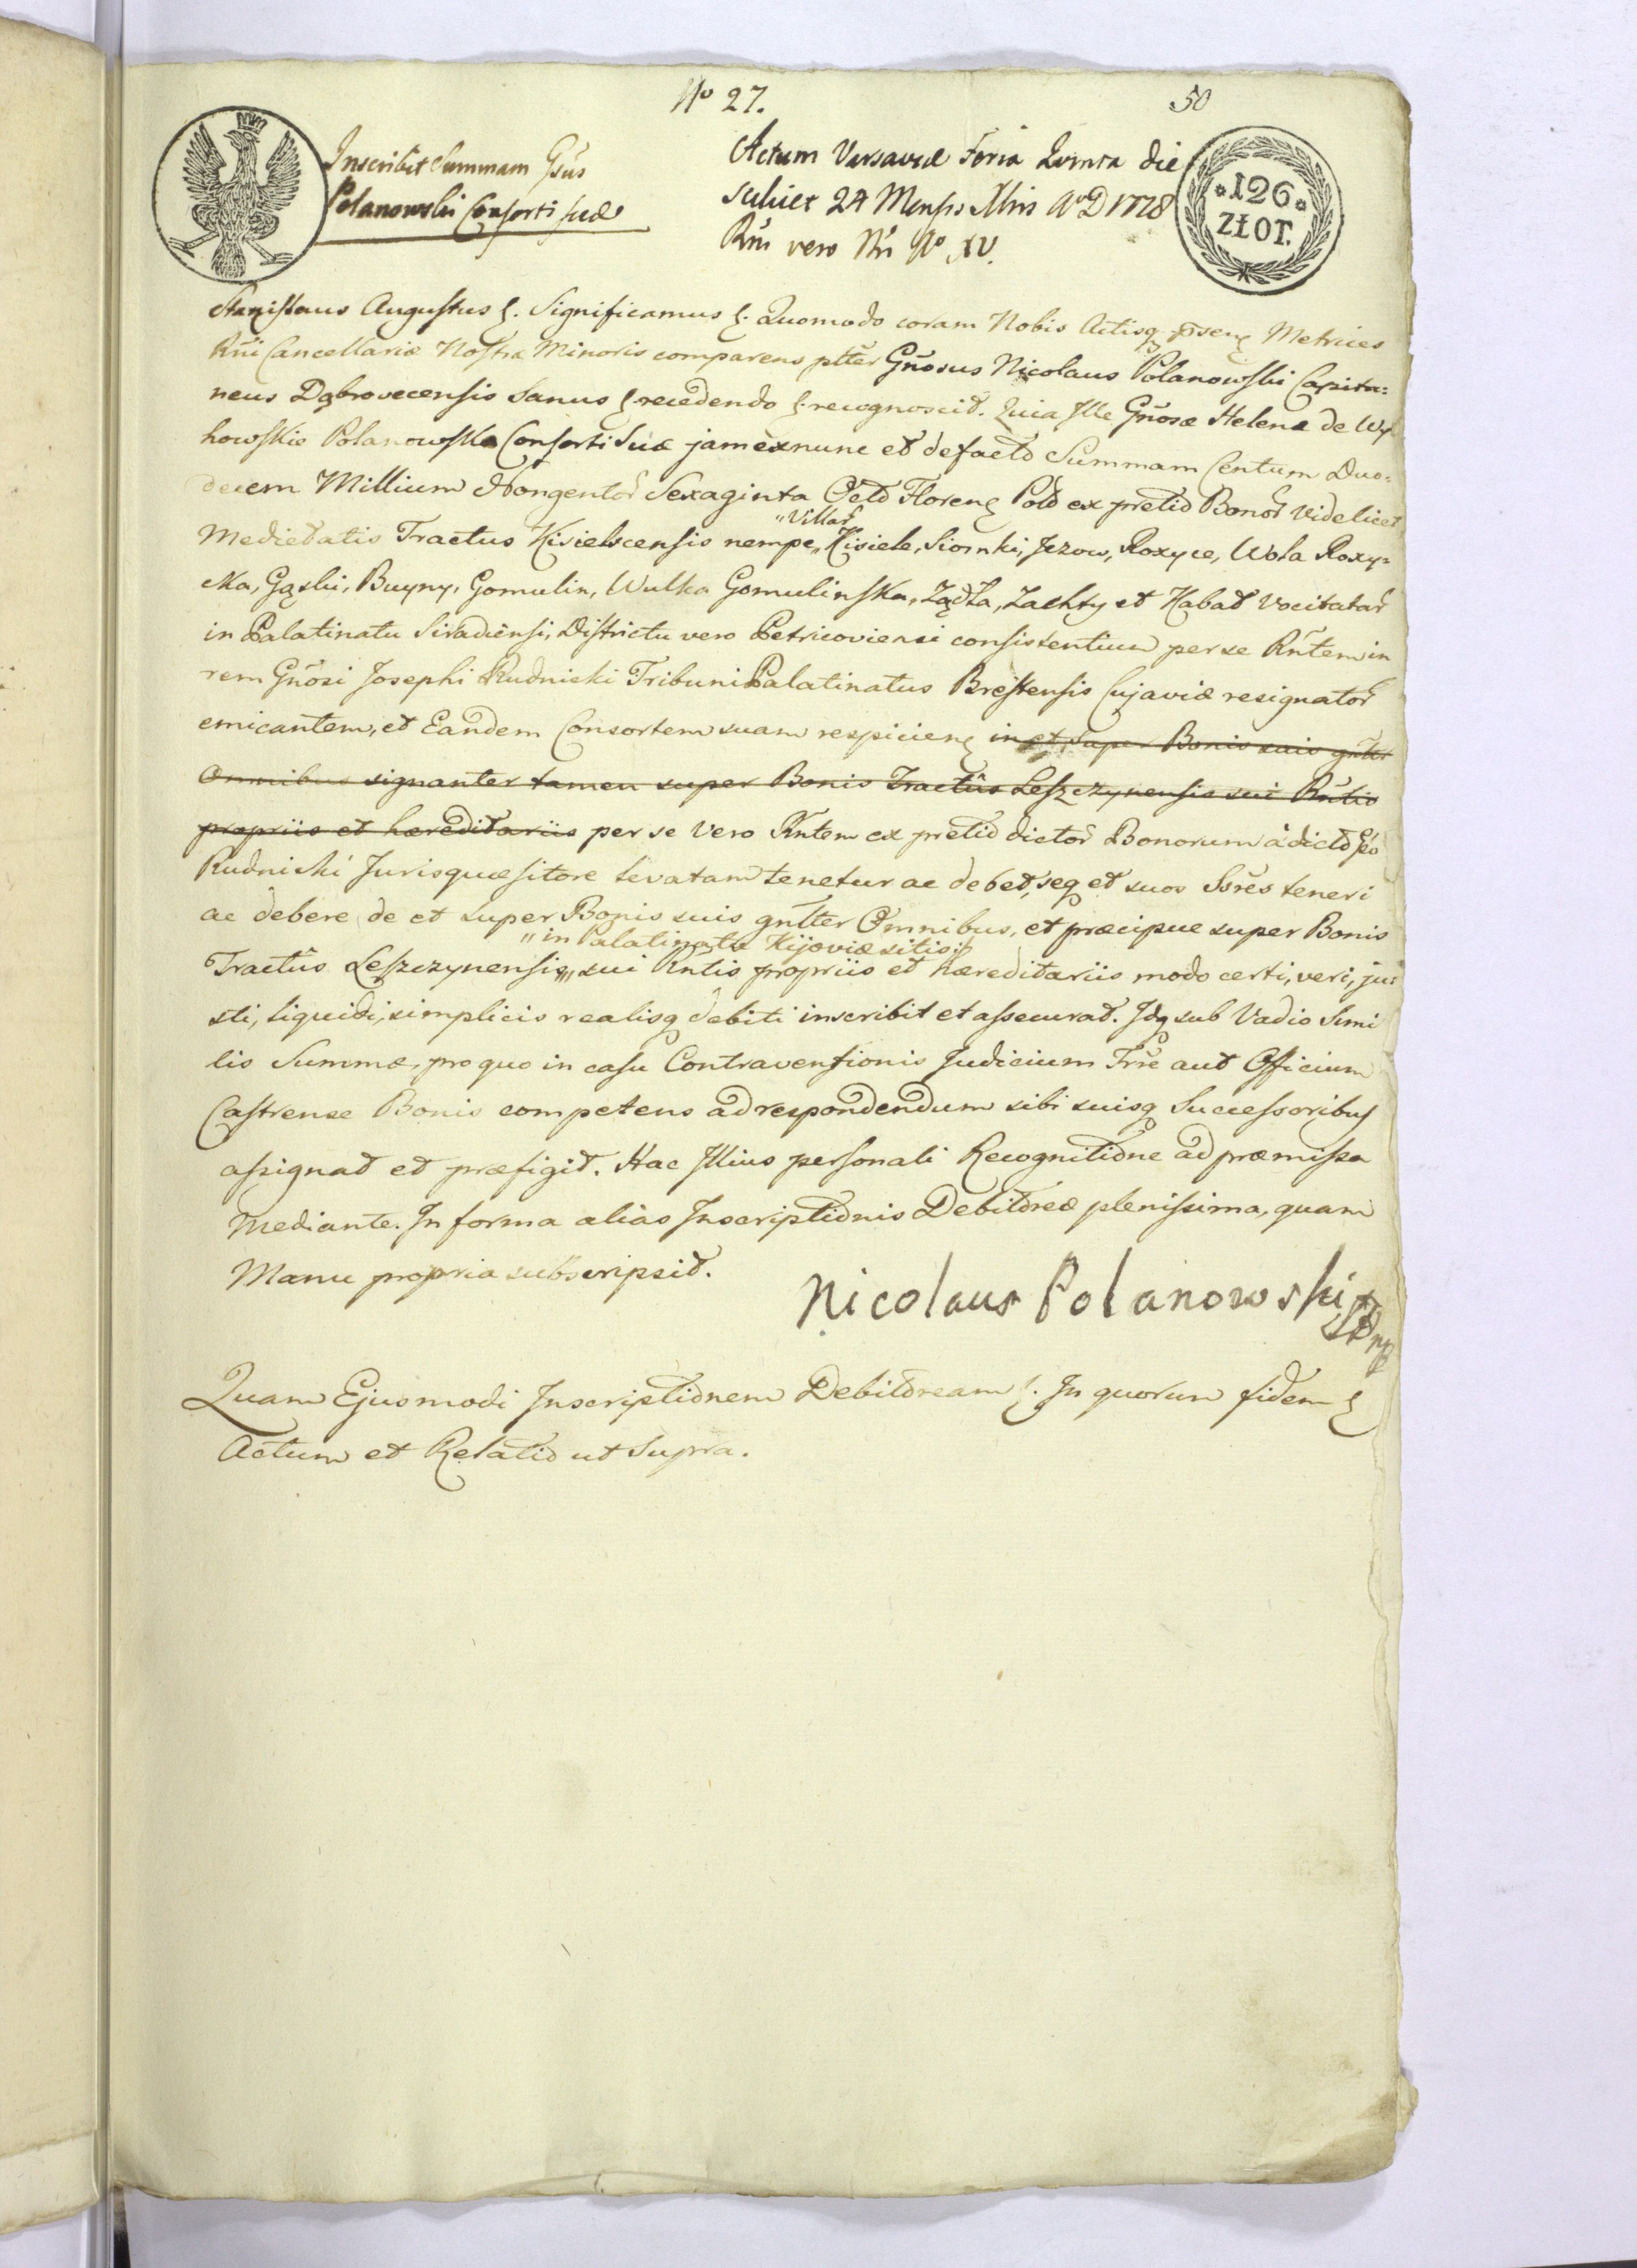 No 27.
50
Inscribit Summam Gsus
Polanowski Consorti suæ
Actum Varsaviæ Feria Quinta die
scilicet 24 Mensis Xbris Ao D 1778
Rni vero Nri No XV.
*126*
ZŁOT.
Stanislaus Augustus &. Significamus &. Quomodo coram Nobis Actisq psenq Metrices
Rni Cancellariæ Nostræ Minoris comparens pltter Gnosus Nicolaus Polanowski Capita=
neus Dąbrovecensis Sanus &. recedendo &. recognovit. Quia Ille Gnosæ Helenæ de Wy
howskie Polanowska Consorti Suæ jam exnunc et defacto Summam Centum Duo=
decem Millium Nongentor Sexaginta Octo Florenq Pol ex pretio Bonor videlicet
Medietatis Tractus Kisielscensis nempe „Villar„ Kisiele, Siomki, Jezow, Roxyce, Wola Roxy=
cka, Gąski, Buyny, Gomulin, Wulka Gomulinska, Żądła, Lachty et Kabat vocitatar
in Palatinatu Siradiensi, Districtu vero Petricoviensi consistentium per se Rntem in
rem Gnosi Josephi Rudnicki Tribuni Palatinatus Brestensis Cujaviæ resignator
emicantem, et Eandem Consortem suam respicienq in et super Bonis suis gnlter
Omnibus signanter tamen super Bonis Tractus Leszczynensis sui Rntis
propriis et hæreditariis per se vero Rntem ex pretio dictor Bonorum a dicto Gso
Rudnicki Jurisquæsitore levatam tenetur ac debet, seq et suos Ssres teneri
ac debere de et super Bonis suis gnlter Omnibus, et præcipue super Bonis
„in Palatinatu Kijoviæ sitis„
Tractus Leszczynensis„„ sui Rntis propriis et hæreditariis modo certi, veri, jus
sti, liquidi, simplicis realisq debiti inscribit et assecurat. Idq sub Vadio Simi
lis Summæ, pro quo in casu Contraventionis Judicium Trre aut Officium
Castrense Bonis competens ad respondendum sibi suisq Successoribus
assignat et præfigit. Hac Illius personali Recognitione ad præmissa
Mediante. In forma alias Inscriptionis Debitoreæ plenissima, quam
Manu propria subscripsit.
Nicolaus Polanowski
Quam Ejusmodi Inscriptionem Debitoream &. In quorum fidem &
Actum et Relatio ut Supra.